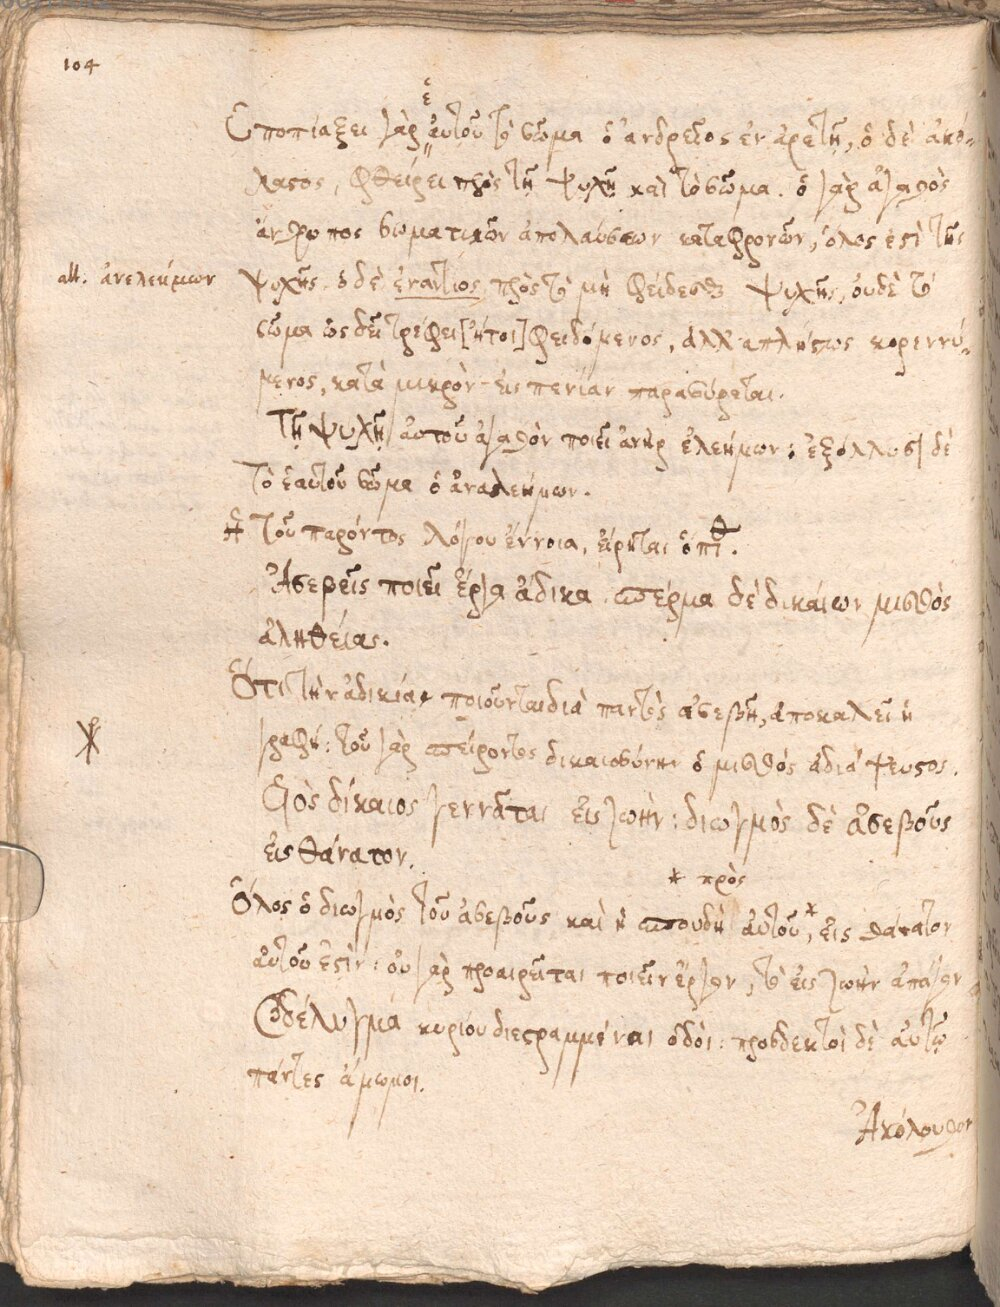 104
ὑποπιάζει γὰρ ἑαυτοῦ τὸ σῶμα ὁ ἀνδρεῖος ἐν ἀρετῇ, ὁ δὲ ἀκό-
λαστος, φθείρει πρὸς τῇ ψυχῇ καὶ τὸ σῶμα. ὁ γὰρ ἀγαθὸς
ἄνθρωπος σωματικῶν ἀπολαύσεων καταφρονῶν, ὅλος ἐστὶ τῆς
alt. ἀνελεήμων
ψυχῆς. ὁ δὲ ἐναντίος, πρὸς τὸ μὴ φείδεσθαι ψυχῆς, οὐδὲ τὸ
σῶμα ὡς δεῖ τρέφει [ἤτοι] φειδόμενος, ἀλλ' ἀπλήστως κορεννύ-
μενος, κατὰ μικρὸν εἰς πενίαν παρασύρεται.
Τῇ ψυχῇ αὐτοῦ ἀγαθὸν ποιεῖ ἀνὴρ ἐλεήμων: ἐξόλλυσι δὲ
τὸ ἑαυτοῦ σῶμα ὁ ἀνελεήμων.
Ἡ τοῦ παρόντος λόγου ἔννοια, εἴρηται ὄπιθ.
Ἀσεβεῖς ποιεῖ ἔργα ἄδικα. σπέρμα δὲ δικαίων μισθὸς
ἀληθείας.
Ὅτι τὴν ἀδικίαν ποιοῦνται διὰ παντὸς ἀσεβῆ, ἀποκαλεῖ ἡ
γραφή: τοῦ γὰρ σπείροντος δικαιοσύνην ὁ μισθός ἀδιάψευστος.
Υἱὸς δίκαιος γεννᾶται εἰς ζωήν: διωγμὸς δὲ ἀσεβοῦς
εἰς θάνατον.
* πρὸς
Ὅλος ὁ διωγμὸς τοῦ ἀσεβοῦς καὶ ἡ σπουδὴ αὐτοῦ,* εἰς θάνατον
αὐτοῦ ἐστίν: οὐ γὰρ προαιρεῖται ποιεῖν ἔργον, τὸ εἰς ζωὴν ἀπάγον
Βδέλυγμα κυρίου διεστραμμέναι ὁδοί: προσδεκτοὶ δὲ αὐτῷ
πάντες ἄμωμοι.
Ἀκόλουθον